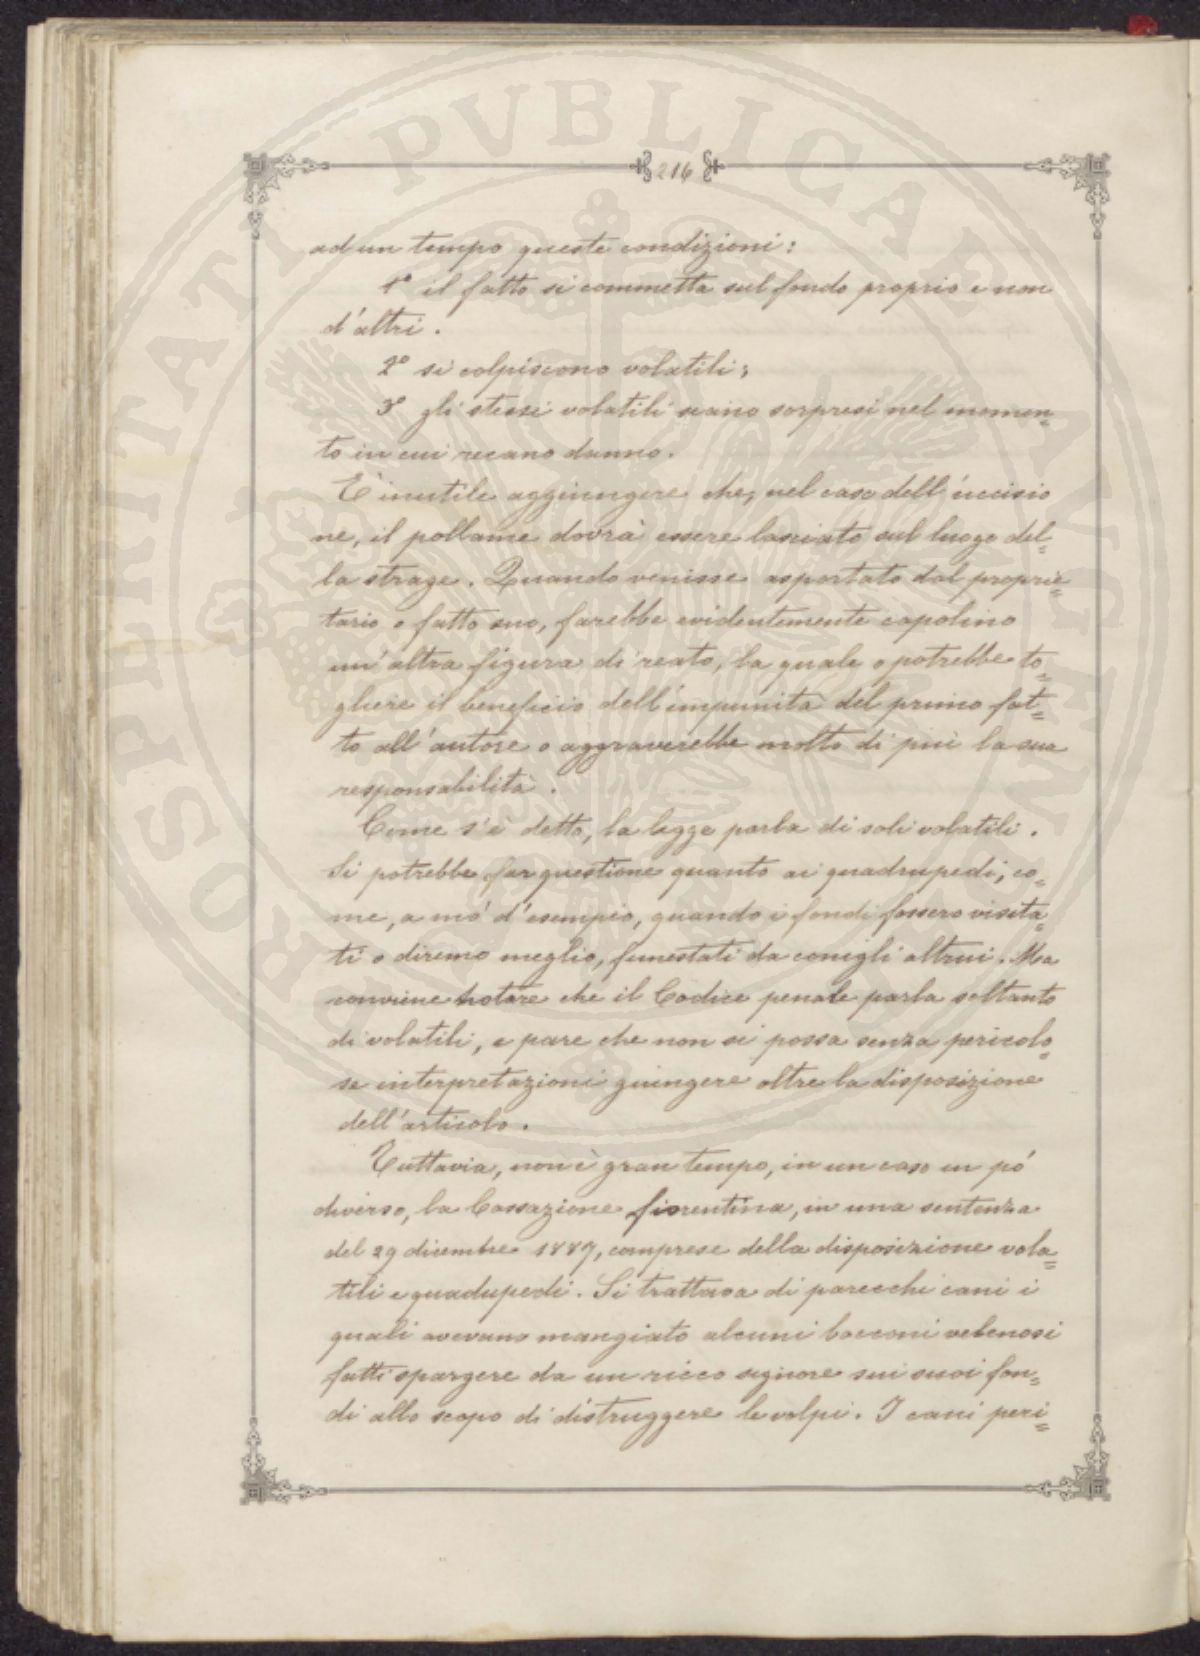 216
ad un tempo queste condizioni:
1° il fatto si commetta sul fondo proprio e non
d'altri.
2° si colpiscono volatili;
3° gli stessi volatili siano sorpresi nel momen=
to in cui recano danno.
E' inutile aggiungere che, nel caso dell'uccisio
ne, il pollame dovrà essere lasciato sul luogo del=
la strage. Quando venisse asportato dal proprie=
tario o fatto suo, farebbe evidentemente capolino
un'altra figura di reato, la quale o potrebbe to=
gliere il beneficio dell'impunità del primo fat=
to all'autore o aggraverebbe molto di più la sua
responsabilità.
Come s'è detto, la legge parla di soli volatili.
Si potrebbe far questione quanto ai quadrupedi, co=
me, a mo' d'esempio, quando i fondi fossero visita=
ti o diremo meglio, funestati da conigli altrui. Ma
conviene notare che il Codice penale parla soltanto
di volatili, e pare che non si possa senza pericolo=
se interpretazioni giungere oltre la disposizione
dell'articolo.
Tuttavia, non è gran tempo, in un caso un pó
diverso, la Cassazione fiorentina, in una sentenza
del 29 dicembre 1887, comprese della disposizione vola=
tili e quadupedi. Si trattava di parecchi cani i
quali avevano mangiato alcuni bocconi velenosi
fatti spargere da un ricco signore sui suoi fon=
di allo scopo di distruggere le volpi. I cani peri=
PROSPERITATI PVBLICAE AVGENDAE